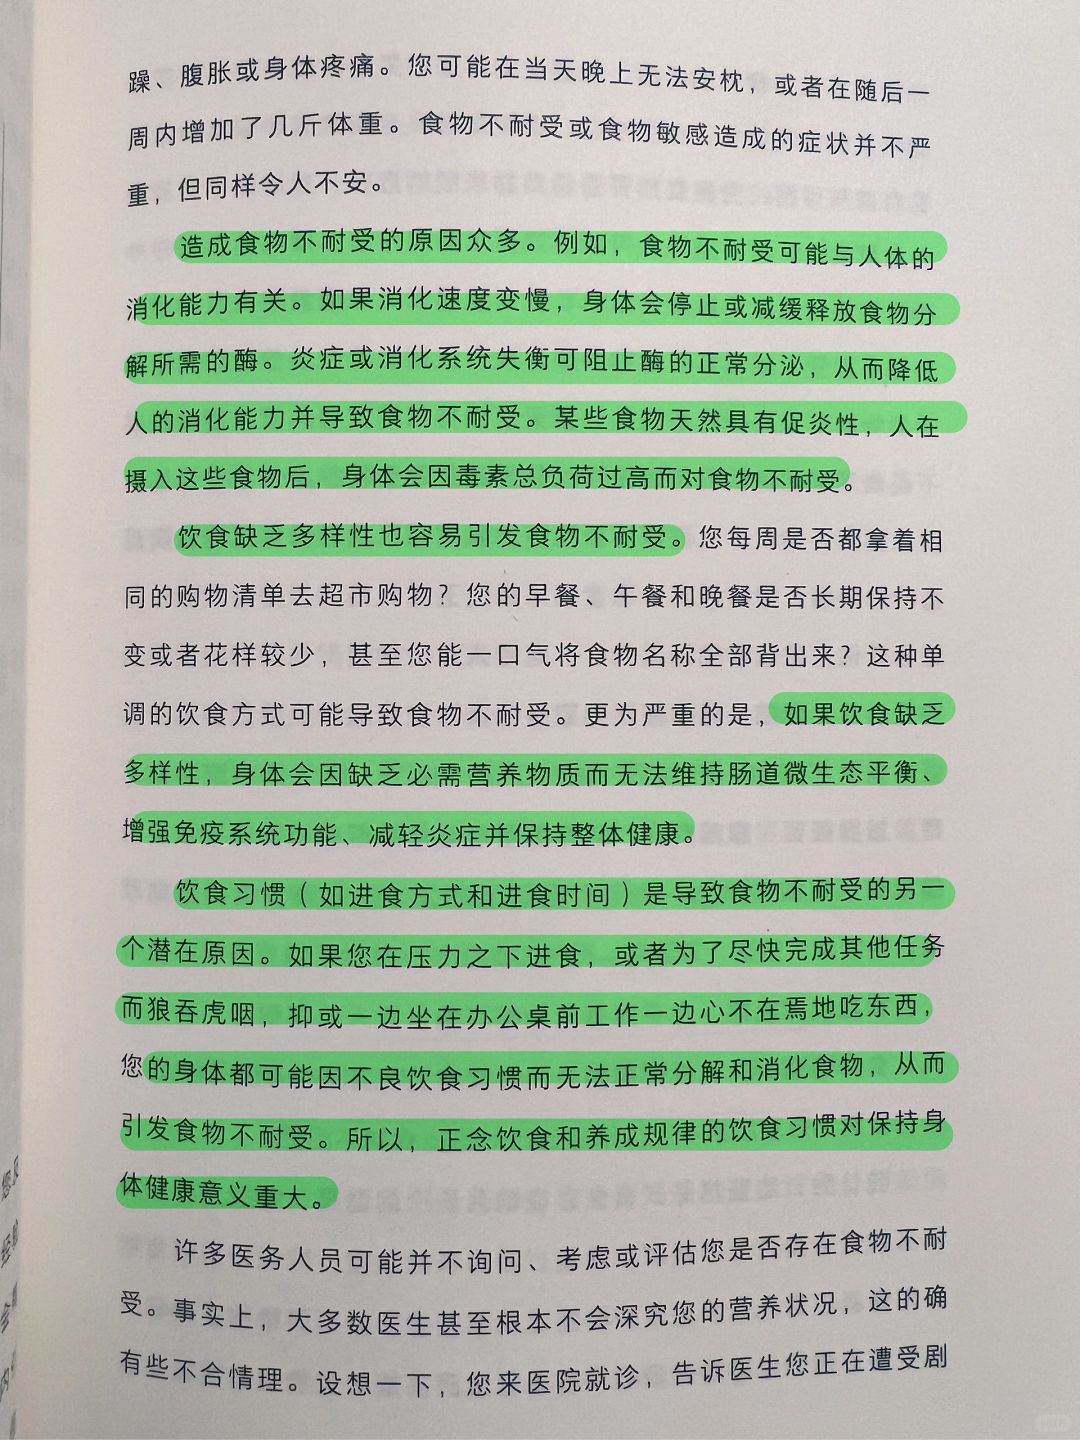 躁、腹胀或身体疼痛。您可能在当天晚上无法安枕，或者在随后一
周内增加了几斤体重。食物不耐受或食物敏感造成的症状并不严
重，但同样令人不安。
造成食物不耐受的原因众多。例如，食物不耐受可能与人体的
消化能力有关。如果消化速度变慢，身体会停止或减缓释放食物分
解所需的酶。炎症或消化系统失衡可阻止酶的正常分泌，从而降低
人的消化能力并导致食物不耐受。某些食物天然具有促炎性，人在
摄入这些食物后，身体会因毒素总负荷过高而对食物不耐受。
饮食缺乏多样性也容易引发食物不耐受。您每周是否都拿着相
同的购物清单去超市购物？您的早餐、午餐和晚餐是否长期保持不
变或者花样较少，甚至您能一口气将食物名称全部背出来？这种单
调的饮食方式可能导致食物不耐受。更为严重的是，如果饮食缺乏
多样性，身体会因缺乏必需营养物质而无法维持肠道微生态平衡、
增强免疫系统功能、减轻炎症并保持整体健康。
饮食习惯（如进食方式和进食时间）是导致食物不耐受的另一
个潜在原因。如果您在压力之下进食，或者为了尽快完成其他任务
而狼吞虎咽，抑或一边坐在办公桌前工作一边心不在焉地吃东西，
您的身体都可能因不良饮食习惯而无法正常分解和消化食物，从而
引发食物不耐受。所以，正念饮食和养成规律的饮食习惯对保持身
体健康意义重大。
许多医务人员可能并不询问、考虑或评估您是否存在食物不耐
受。事实上，大多数医生甚至根本不会深究您的营养状况，这的确
有些不合情理。设想一下，您来医院就诊，告诉医生您正在遭受剧